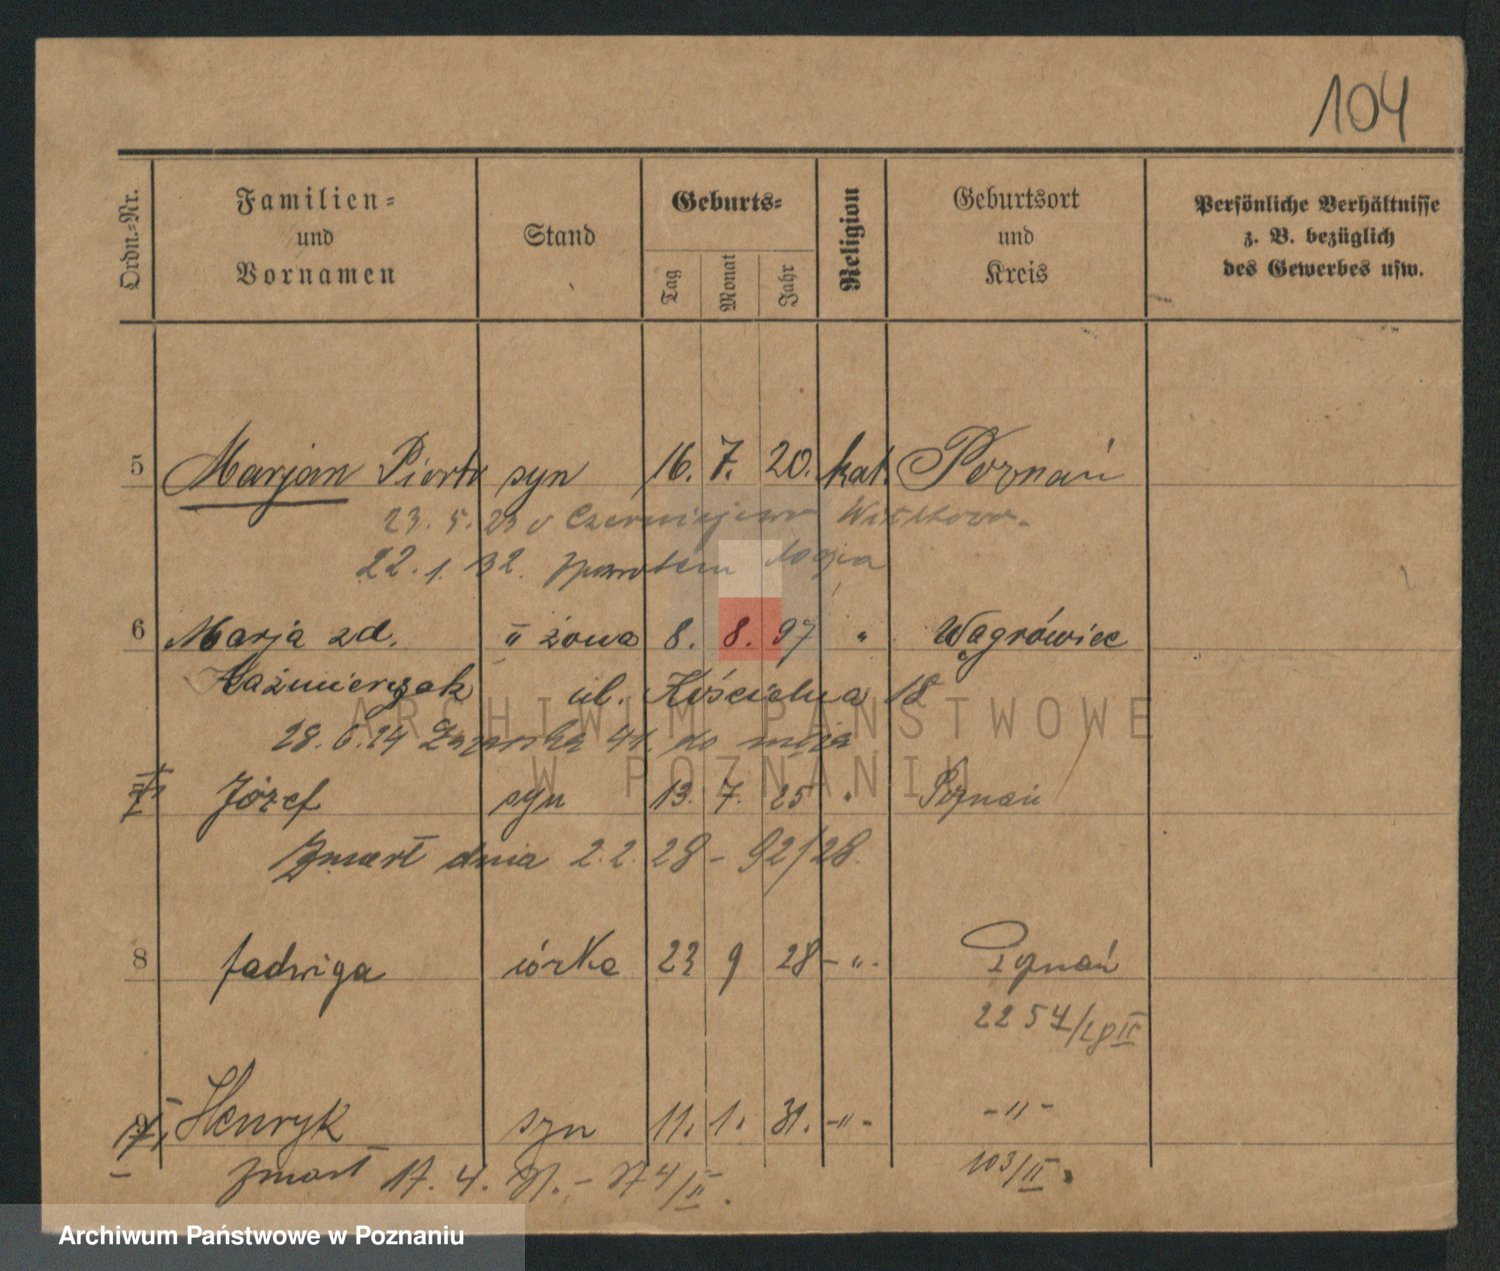 104
Ordn.-Nr.
Familien-
und
Vornamen
Stand
Geburts-
Tag
Monat
Jahr
Religion
Geburtsort
und
Kreis
Persönliche Verhältnisse
z. B. bezüglich
des Gewerbes usw.
5 Marjan Piotr syn 16. 7. 20. kat. Poznań
23. 5. 23 v Czerniejewo Witkowo.
22. 1. 32. z powrotem
6 Marja zd. II żona 8. 8. 97 " Wągrówiec
Kaźmierczak ul. Kościelna 18
28. 6. 24 41. do męża
Józef syn 13. 7. 25 " Poznań
Zmarł dnia 2. 2. 28 - 92/28.
8 Jadwiga córka 23 9 28 - " - Poznań
2254/28 II
9 Henryk syn 11. 1. 31. - " - - " -
103/II.
zmarł 17. 4. 31. - 374/II.
ARCHIWUM PAŃSTWOWE
W POZNANIU
Archiwum Państwowe w Poznaniu